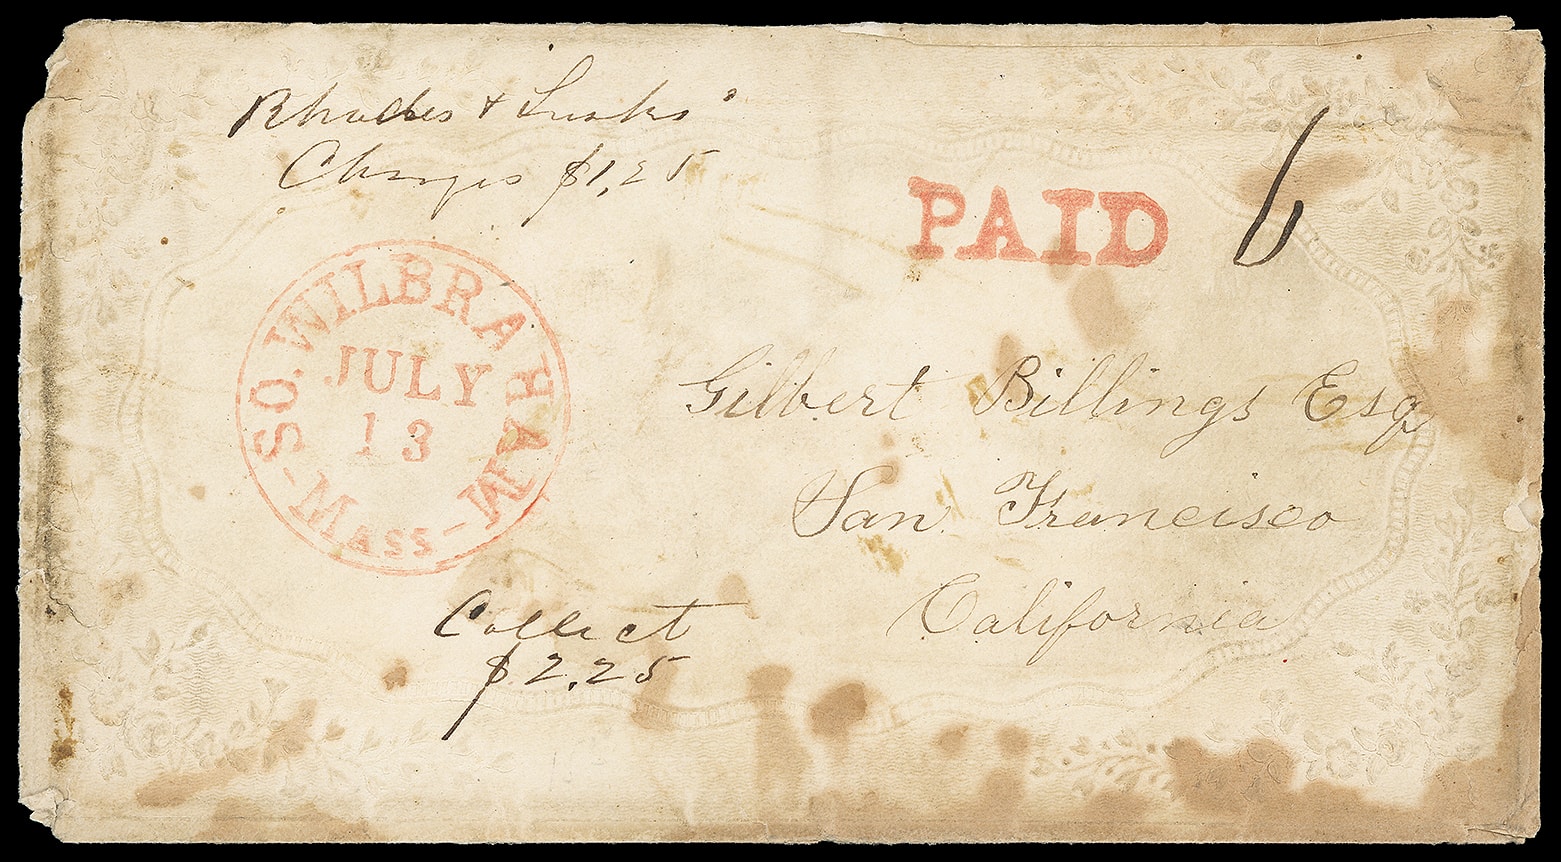 Rhodes & Lusks'
Charges $1,25
PAID 6
SO. WILBRAHAM
JULY
13
- MASS -
Gilbert Billings Esq
San Francisco
California
Collect
$2.25